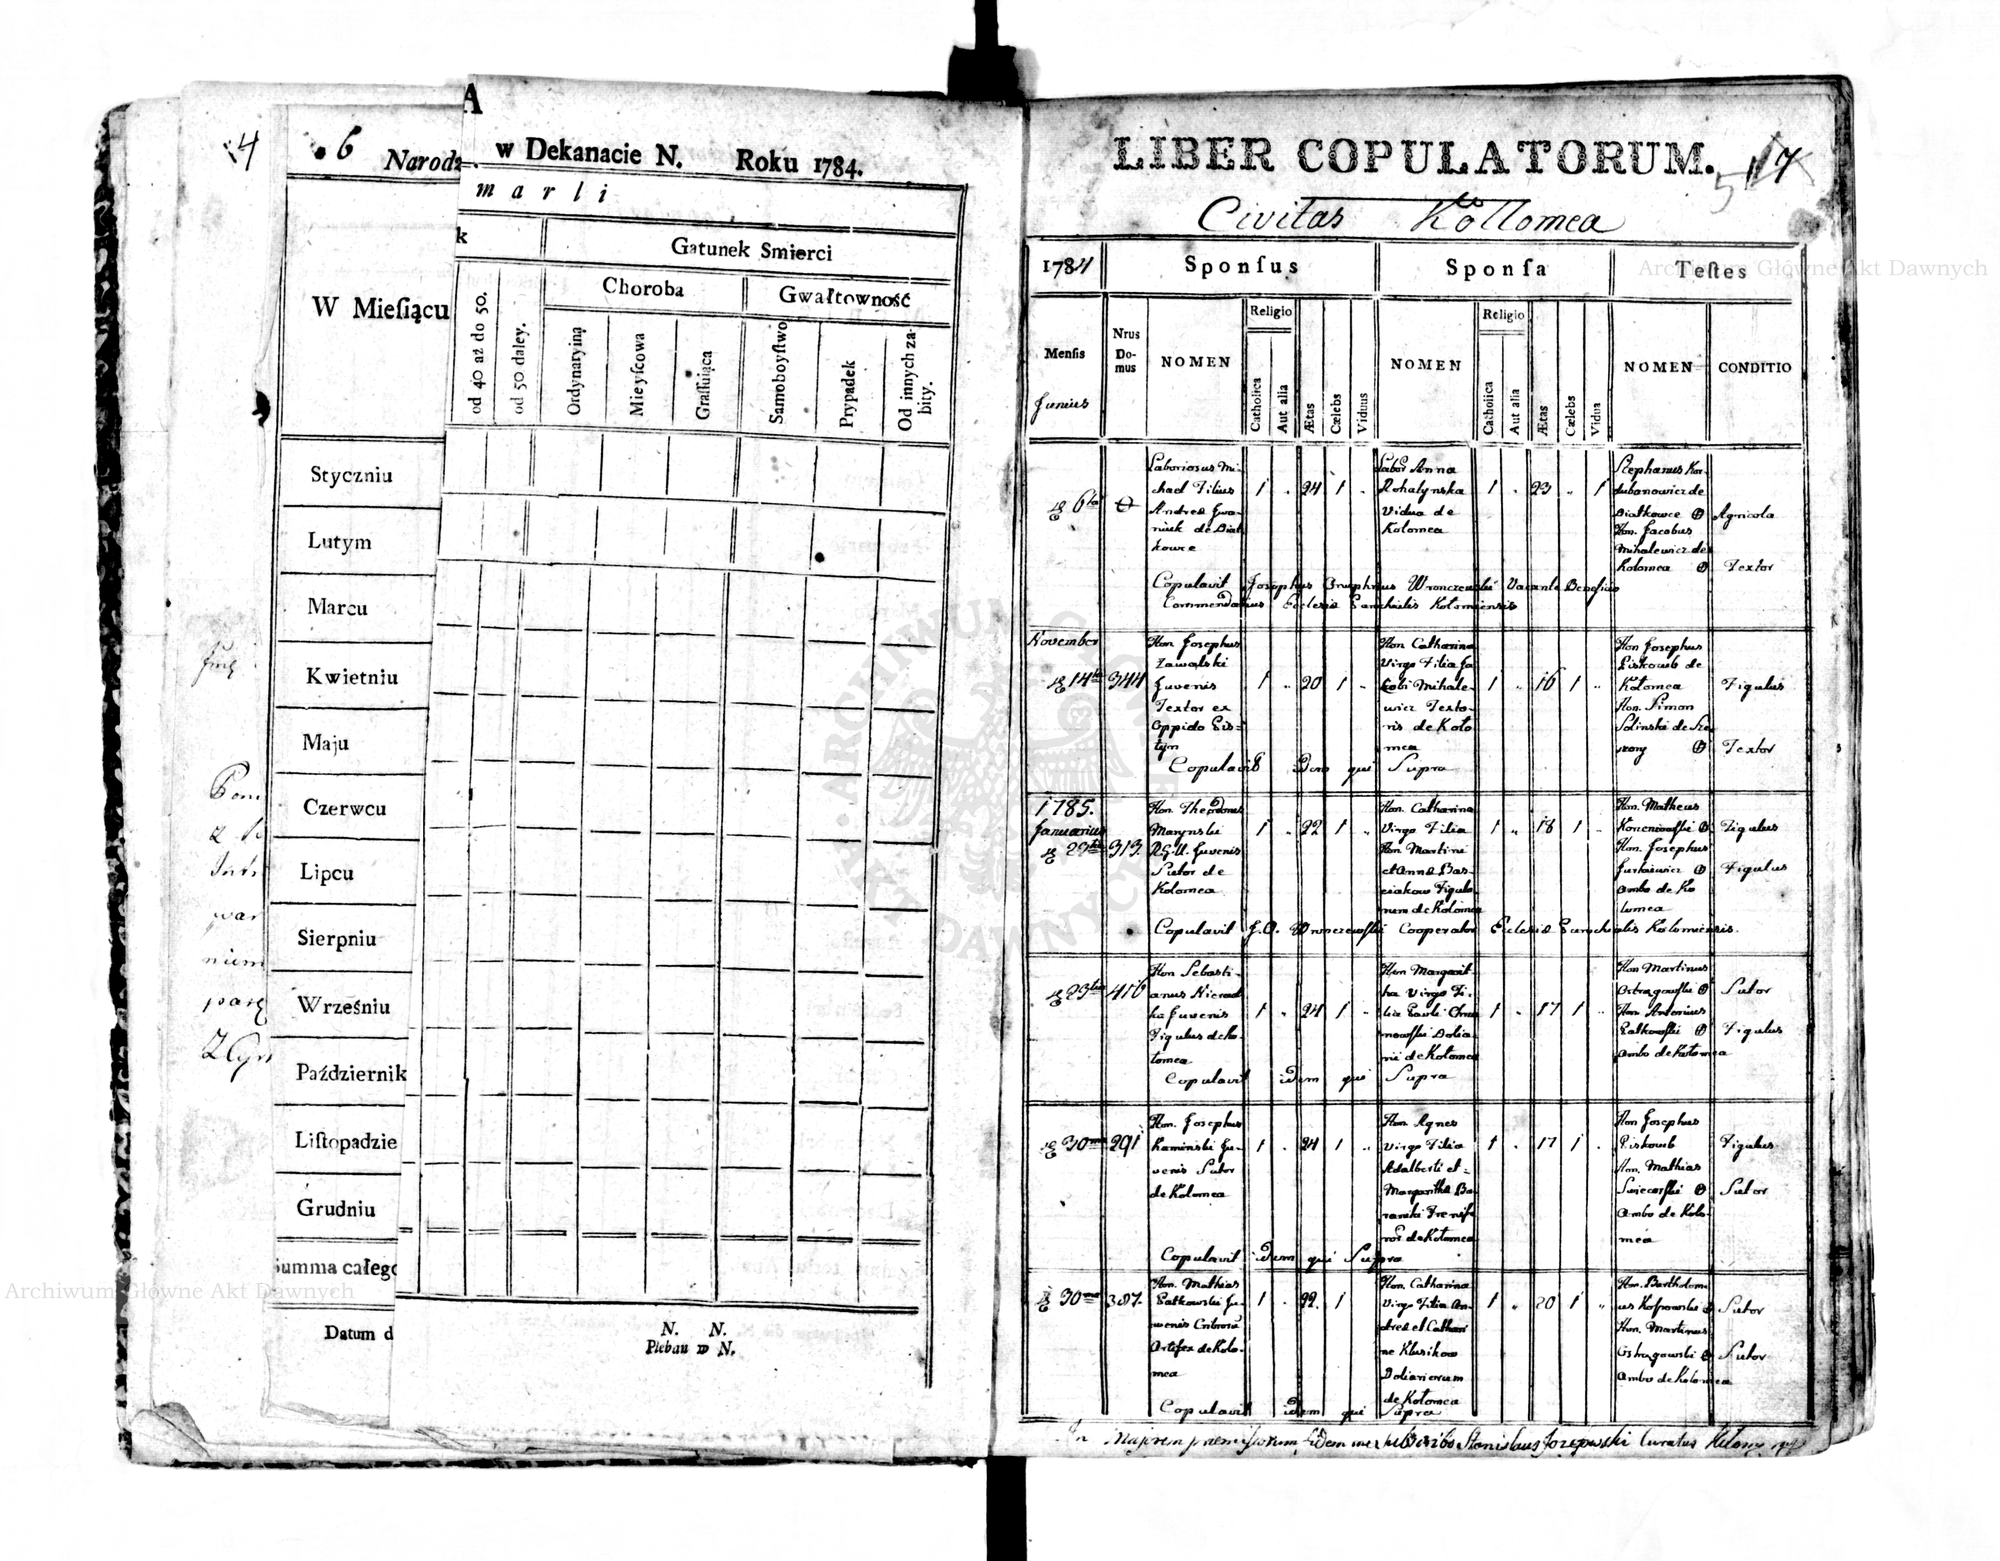 14
6
Narodz
A
w Dekanacie N. Roku 1784.
marli
k
Gatunek Smierci
Choroba
Gwałtowność
W Mieſiącu
od 40 aż do 50.
od 50 daley.
Ordynaryiną
Mieyſcowa
Graſſuiąca
Samoboyſtwo
Przypadek
Od innych za-
bity.
Styczniu
Lutym
Marcu
Kwietniu
Maju
Czerwcu
Lipcu
Sierpniu
Wrześniu
Październik
Liſtopadzie
Grudniu
Summa całego
Datum d
N. N.
Pleban w N.
LIBER COPULATORUM.
17
Civitas Kołłomea
1784
Sponſus
Sponſa
Teſtes
Menſis
Junius
Nrus
Do-
mus
NOMEN
Religio
Catholica
Aut alia
Ætas
Cælebs
Viduus
NOMEN
Religio
Catholica
Aut alia
Ætas
Cælebs
Vidua
NOMEN
CONDITIO
6ta
Laboriosus Mi-
chael Filius
Andreæ Iwa-
niuk de Diat
kowce
1 24 1
Labor Anna
Rohatynska
Vidua de
Kolomea
1 23 1
Stephanus Kor-
dubanowicz de
Diatkowce
Hon. Jacobus
Mihalewicz de
Kolomea
Agricola
Textor
Copulavit Josephus Onuphrius Wronczewski Vacante Beneficio
Commendarius Ecclesiæ Parochialis Kolomiensis
November
14ta
344
Hon Josephus
Zawalski
Juvenis
Textor ex
Oppido Pis-
tyn
1 20 1
Hon Catharina
Virgo Filia Ja
cobi Mihale-
wicz Texto-
ris de Koło
mea
1 16 1
Hon Josephus
Piskozub de
Kołomea
Hon. Simon
Solinski de
Figulus
Textor
Copulavit Idem qui Supra
1785.
Januarius
23tia
313.
Hon. Theodorus
Marynski
R.G.U. Juvenis
Sutor de
Kolomea
1 22 1
Hon. Catharina
Virgo Filia
Hon Martini
et Annæ Bas-
ciakow Figulo
rum de Kolomea
1 18 1
Hon. Matheus
Hon. Josephus
Jurkiewicz
Ambo de Ko
lomea
Figulus
Figulus
Copulavit J.O. Wronczewski Cooperator Ecclesiæ Parochialis Kolomiensis.
23tia
416
Hon Sebasti-
anus Nierad
ka Juvenis
Figulus de Ko-
lomea
1 24 1
Hon Margarit-
ha Virgo Fi-
lia Pauli
nowski Dolia-
rii de Kołomea
1 17 1
Hon Martinus
Ostrzgowski
Hon. Antonius
Patkowski
Ambo de Kołomea
Sutor
Figulus
Copulavit idem qui Supra
30ma
291
Hon. Josephus
Kaminski Ju-
venis Sutor
de Kolomea
1 24 1
Hon Agnes
Virgo Filia
Adalberti et
Margarithæ Ba-
ranski
de Kołomea
1 17 1
Hon Josephus
Piskozub
Hon. Mathias
Swiecarski
Ambo de Kolo-
mea
Figulus
Sutor
Copulavit Idem qui Supra
30ma
387.
Hon. Mathias
Patkowski Ju-
venis Cribroru
Artifex de Kolo-
mea
1 22. 1
Hon. Catharina
Virgo Filia An-
dreæ et Cathari
næ Klusikow
Doliariorum
de Kołomea
1 20 1
Hon. Bartholom
us
Hon. Martinus
Ostrzgowski
Ambo de Kolomea
Sutor
Sutor
Copulavit Idem qui Supra
In Majorem præmissorum fidem me subscribo Stanislaus Jozepowski Curatus
Archiwum Główne Akt Dawnych
Archiwum Główne Akt Dawnych
ARCHIWUM GŁÓWNE AKT DAWNYCH